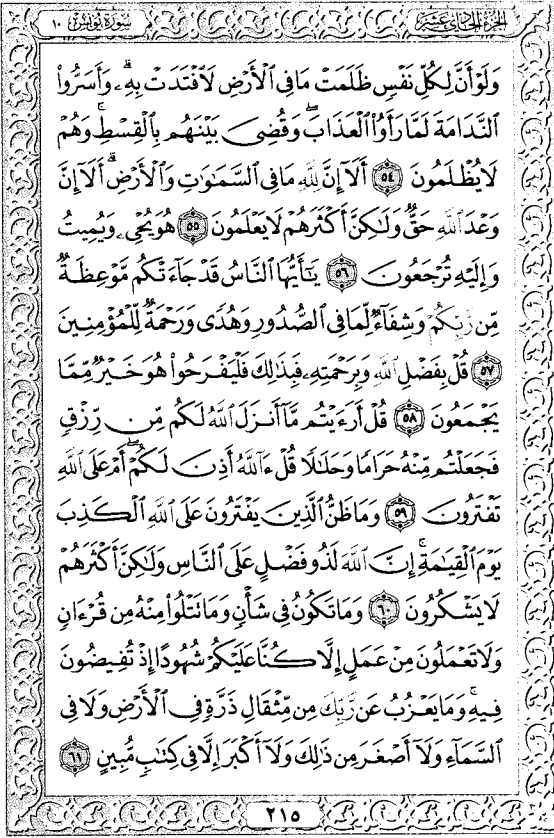 الجزء الحادي عشر
سورة يونس ١٠
وَلَوْ أَنَّ لِكُلِّ نَفْسٍ ظَلَمَتْ مَا فِي ٱلْأَرْضِ لَٱفْتَدَتْ بِهِۦۗ وَأَسَرُّوا۟
ٱلنَّدَامَةَ لَمَّا رَأَوُا۟ ٱلْعَذَابَۖ وَقُضِىَ بَيْنَهُم بِٱلْقِسْطِۚ وَهُمْ
لَا يُظْلَمُونَ ٥٤ أَلَآ إِنَّ لِلَّهِ مَا فِي ٱلسَّمَٰوَٰتِ وَٱلْأَرْضِۗ أَلَآ إِنَّ
وَعْدَ ٱللَّهِ حَقٌّ وَلَٰكِنَّ أَكْثَرَهُمْ لَا يَعْلَمُونَ ٥٥ هُوَ يُحْىِۦ وَيُمِيتُ
وَإِلَيْهِ تُرْجَعُونَ ٥٦ يَٰٓأَيُّهَا ٱلنَّاسُ قَدْ جَآءَتْكُم مَّوْعِظَةٌ
مِّن رَّبِّكُمْ وَشِفَآءٌ لِّمَا فِي ٱلصُّدُورِ وَهُدًى وَرَحْمَةٌ لِّلْمُؤْمِنِينَ
٥٧ قُلْ بِفَضْلِ ٱللَّهِ وَبِرَحْمَتِهِۦ فَبِذَٰلِكَ فَلْيَفْرَحُوا۟ هُوَ خَيْرٌ مِّمَّا
يَجْمَعُونَ ٥٨ قُلْ أَرَءَيْتُم مَّآ أَنزَلَ ٱللَّهُ لَكُم مِّن رِّزْقٍ
فَجَعَلْتُم مِّنْهُ حَرَامًا وَحَلَٰلًا قُلْ ءَآللَّهُ أَذِنَ لَكُمْۖ أَمْ عَلَى ٱللَّهِ
تَفْتَرُونَ ٥٩ وَمَا ظَنُّ ٱلَّذِينَ يَفْتَرُونَ عَلَى ٱللَّهِ ٱلْكَذِبَ
يَوْمَ ٱلْقِيَٰمَةِۗ إِنَّ ٱللَّهَ لَذُو فَضْلٍ عَلَى ٱلنَّاسِ وَلَٰكِنَّ أَكْثَرَهُمْ
لَا يَشْكُرُونَ ٦٠ وَمَا تَكُونُ فِي شَأْنٍ وَمَا تَتْلُوا۟ مِنْهُ مِن قُرْءَانٍ
وَلَا تَعْمَلُونَ مِنْ عَمَلٍ إِلَّا كُنَّا عَلَيْكُمْ شُهُودًا إِذْ تُفِيضُونَ
فِيهِۚ وَمَا يَعْزُبُ عَن رَّبِّكَ مِن مِّثْقَالِ ذَرَّةٍ فِي ٱلْأَرْضِ وَلَا فِي
ٱلسَّمَآءِ وَلَآ أَصْغَرَ مِن ذَٰلِكَ وَلَآ أَكْبَرَ إِلَّا فِي كِتَٰبٍ مُّبِينٍ ٦١
٢١٥